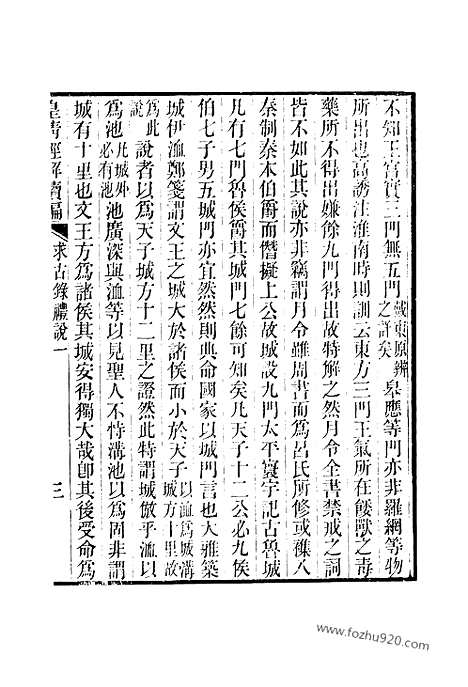 不知王宮實三門無五門戴東原辨之詳矣皋應等門亦非羅網等物
所出也高誘注淮南時則訓云東方三門王氣所在餧獸之毒
藥所不得出嫌餘九門得出故特解之然月令全書禁戒之詞
皆不如此其說亦非竊謂月令雖周書而為呂氏所修或襍入
秦制秦本伯爵而僭擬上公故城設九門太平寰宇記古魯城
凡有七門魯侯爵其城門七餘可知矣凡天子十二公必九侯
伯七子男五城門亦宜然然則典命國家以城門言也大雅築
城伊淢鄭箋謂文王之城大於諸侯而小於天子以淢為城溝城方十里故
為此說說者以為天子城方十二里之證然此特謂城倣乎淢以
為池凡城外必有池池廣深與淢等以見聖人不恃溝池以為固非謂
城有十里也文王方為諸侯其城安得獨大哉卽其後受命為
皇清經解續編 求古錄禮說一 三
www.fozhu920.com